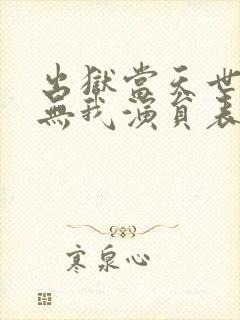 出獄當天世
無我演員表
寒泉心